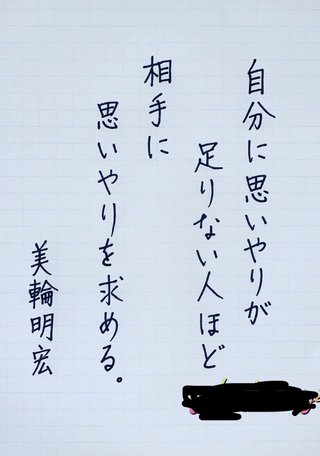 自分に思いやりが
足りない人ほど
相手に
思いやりを求める。
美輪明宏